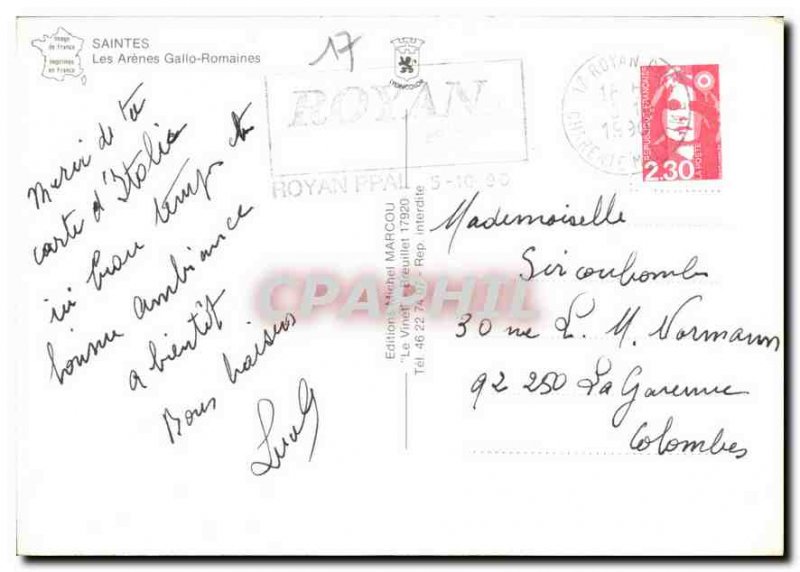 image
de france
imprimée
en france
SAINTES
Les Arènes Gallo-Romaines
17
LYONCOLOR
ROYAN
ROYAN PPAL 5-10 90
17 ROYAN
1990
CHARENTE M
REPUBLIQUE FRANÇAISE
LA POSTE
2,30
Merci de ta
carte d'Italie
ici beau temps et
bonne ambiance
a bientôt
Bons baisers
Editions Michel MARCOU
"Le Vinet" Breuillet 17920
Tél. 46 22 74 07 - Rep. interdite
CPAPHIL
Mademoiselle
Sircoulomb
30 rue L. M. Normann
92 250 La Garenne
Colombes